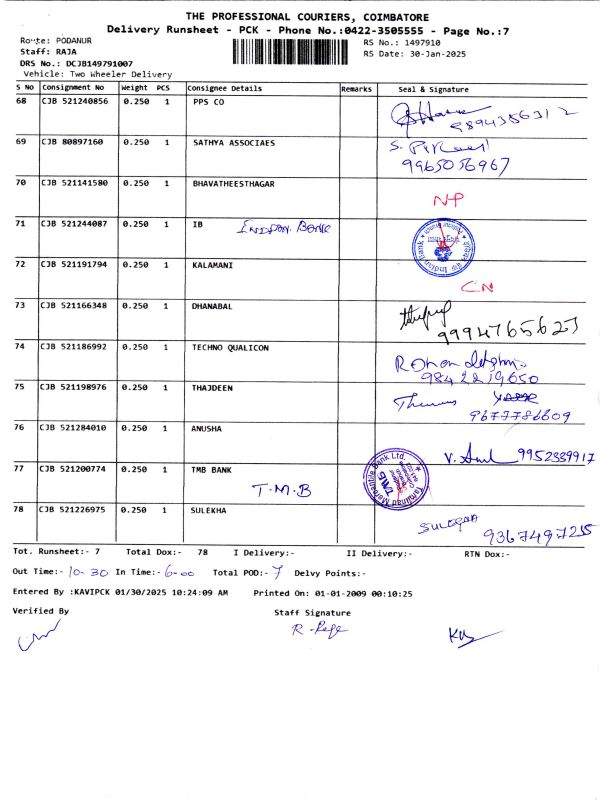 THE PROFESSIONAL COURIERS, COIMBATORE
Delivery Runsheet - PCK - Phone No.:0422-3505555 - Page No.:7
Route: PODANUR
RS No.: 1497910
Staff: RAJA
RS Date: 30-Jan-2025
DRS No.: DCJB149791007
Vehicle: Two Wheeler Delivery
S No Consignment No Weight PCS Consignee Details Remarks Seal & Signature
68 CJB 521240856 0.250 1 PPS CO
9894356312
69 CJB 80897160 0.250 1 SATHYA ASSOCIAES
9965056967
70 CJB 521141580 0.250 1 BHAVATHEESTHAGAR NP
71 CJB 521244087 0.250 1 IB Indian Bank
72 CJB 521191794 0.250 1 KALAMANI CN
73 CJB 521166348 0.250 1 DHANABAL
9994765623
74 CJB 521186992 0.250 1 TECHNO QUALICON
9842219650
75 CJB 521198976 0.250 1 THAJDEEN
9677786609
76 CJB 521284010 0.250 1 ANUSHA
9952339917
77 CJB 521200774 0.250 1 TMB BANK
T.M.B
Tamilnad Mercantile Bank Ltd.
TMB
78 CJB 521226975 0.250 1 SULEKHA
9367497255
Tot. Runsheet:- 7 Total Dox:- 78 I Delivery:- II Delivery:- RTN Dox:-
Out Time:- 10-30 In Time:- 6-00 Total POD:- 7 Delvy Points:-
Entered By :KAVIPCK 01/30/2025 10:24:09 AM Printed On: 01-01-2009 00:10:25
Verified By Staff Signature